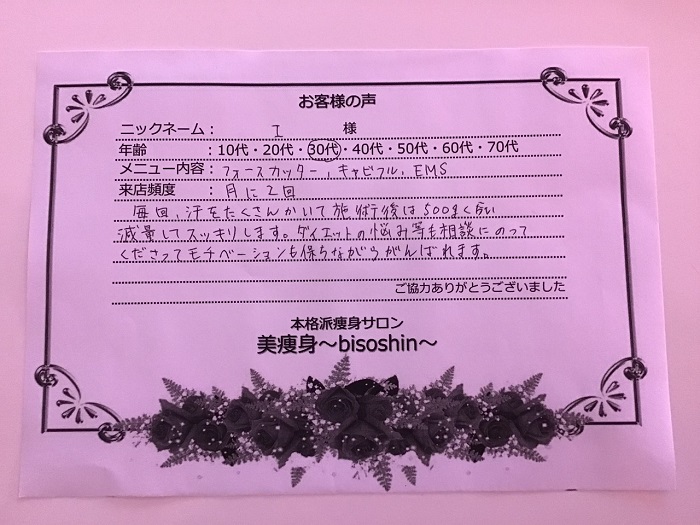 お客様の声
ニックネーム： I 様
年齢 ：10代・20代・30代・40代・50代・60代・70代
メニュー内容：フォースカッター, キャビフル, EMS
来店頻度 ：月に2回
毎回、汗をたくさんかいて施術後は500gくらい
減量してスッキリします。ダイエットの悩み等も相談にのって
くださってモチベーションも保ちながらがんばれます。
ご協力ありがとうございました
本格派痩身サロン
美痩身～bisoshin～